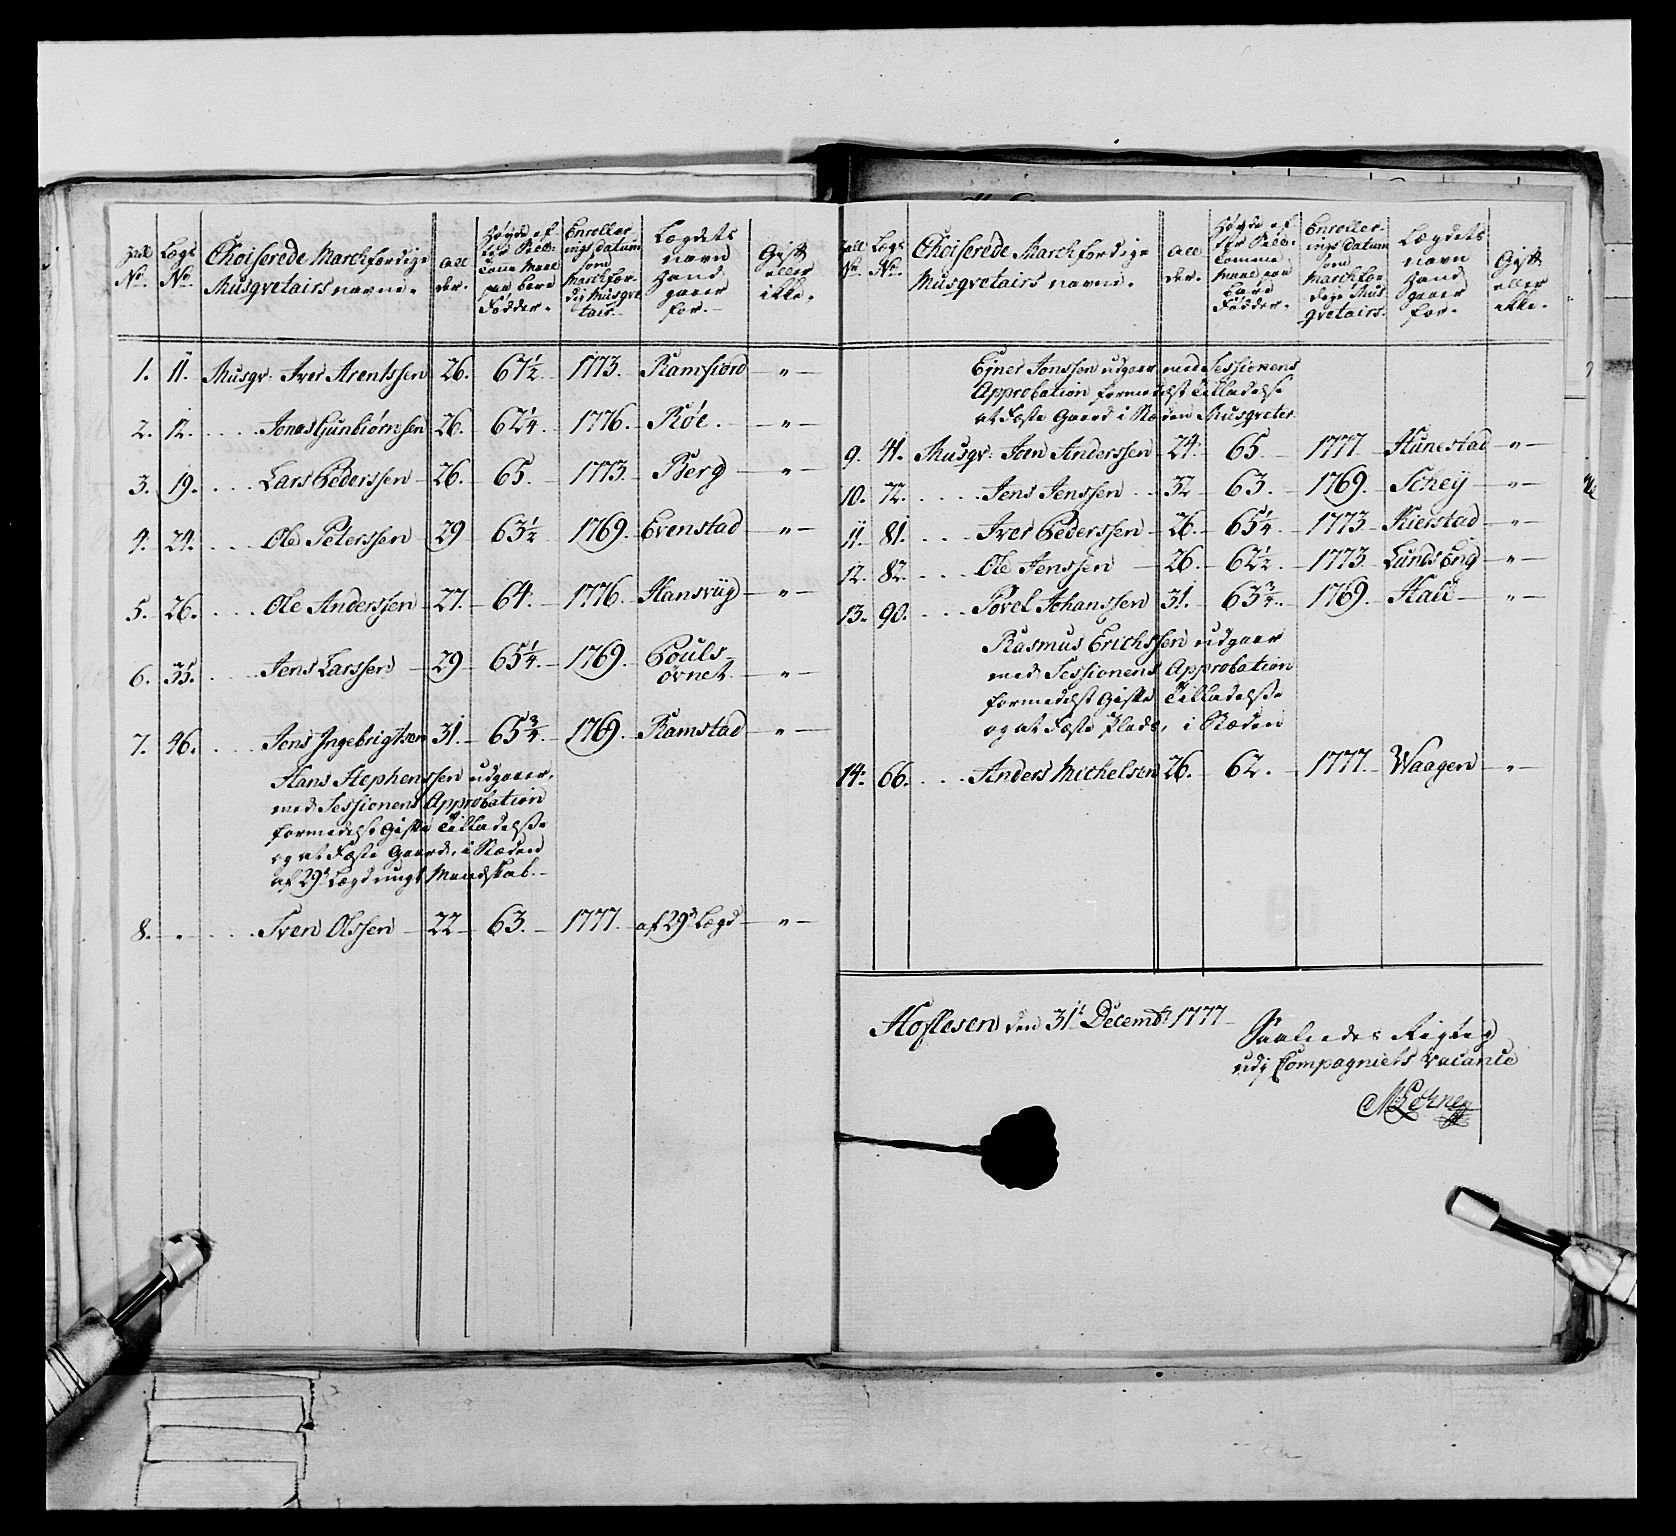 Tall No. | Lægs No. | Choiserede Marchfærdige Musqvetairs navne. | All der. | Høyde af | Enroller ings datum som Marchfær dig Musqve tair. | Lægdets navn hand gaaer for. | Gift eller ikke.
1. 11. Musqv: Iver Arentssen 26. 67½ 1773. Ramfiord —"—
2. 12. .... Jonas Gunbiørnsen 26. 62¼. 1776. Røe. —"—
3. 19. .... Lars Pederssen 26. 65. 1773. Berg —"—
4. 24. .... Ole Peterssen 29 63½ 1769. Evenstad —"—
5. 26. .... Ole Anderssen 27. 64. 1776. Hansviig —"—
6. 35. .... Jens Larssen 29 65¼. 1769. Pouls-
øvnet. —"—
7. 46. .... Jens Ingebrigtsen 31. 65¾. 1769. Ramstad —"—
Hans Stephenssen udgaaer,
med Sessionens Approbation
formedelst Gifte Tilladelse
og at Fæste Gaard, i Stæden
af 29de Lægd ungt Mandskab.
8. " .... Sven Olssen 22 63. 1777. af 29de Lægd —"—
Tall No. | Lægs No. | Choiserede Marchfærdige Musqvetairs navne. | All der. | Høyde af | Enroller ings datum som Marchfær dige Mus qvetairs. | Lægdets navn hand gaaer for. | Gift eller ikke.
Ejner Jonssen udgaaer med Sessionens
Approbation formedelst Tilladelse
at Fæste Gaard i Stæden Musqveter
9. 41. Musqv: Joen Anderssen 24. 65. 1777. Hunestad —"—
10. 72. .... Jens Jenssen 32 63. 1769. Schey —"—
11. 81. .... Iver Pederssen 26. 65¼ 1773. Kierstad —"—
12. 82. .... Ole Jenssen 26. 62½ 1773. Lunds Eng —"—
13. 90. .... Povel Johanssen 31. 63¾. 1769. Hall —"—
Rasmus Erichssen udgaaer
med Sessionens Approbation
formedelst Gifte Tilladelse
og at Fæste Plads, i Stæden
14. 66. .... Anders Michelsen 26. 62. 1777. Waagen —"—
Hoflesen den 31t Decembr 1777
Saaledes Rigtig
udj Compagniets Vacance